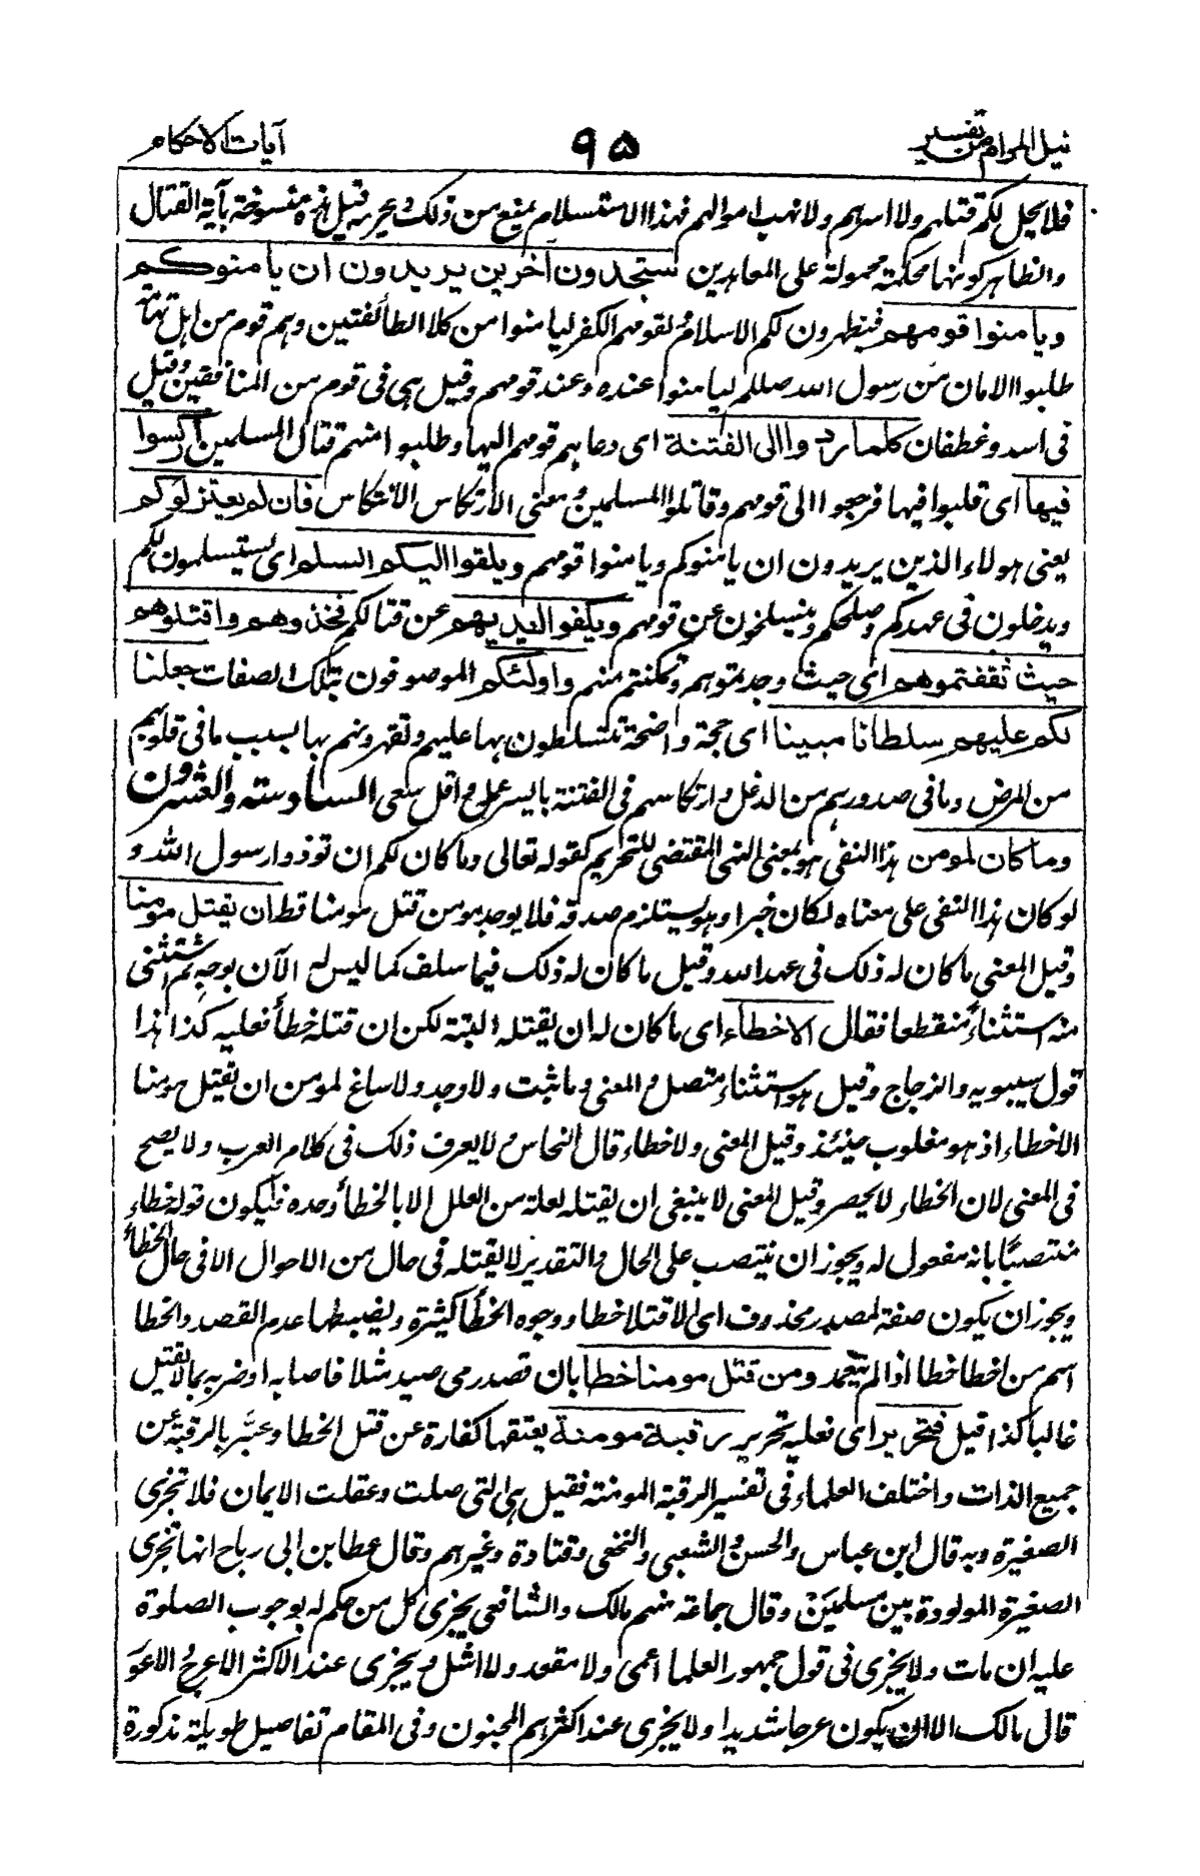 نيل المرام من تفسير
٩٥
آيات الاحكام
فلا يحل لكم قتلهم ولا اسرهم ولا نهب اموالهم فهذا الاستسلام يمنع من ذلك ويحرمه قيل هذه منسوخة بآية القتال
والظاهر كونها محكمة محمولة على المعاهدين ستجدون آخرين يريدون ان يامنوكم
ويامنوا قومهم فيظهرون لكم الاسلام ولقومهم الكفر ليامنوا من كلا الطائفتين وهم قوم من اهل تهامة
طلبوا الامان من رسول الله صللم ليامنوا عنده وعند قومهم وقيل هي في قوم من المنافقين وقيل
في اسد وغطفان كلما ردوا الى الفتنة اى دعاهم قومهم اليها وطلبوا منهم قتال المسلمين اركسوا
فيها اى قلبوا فيها فرجعوا الى قومهم وقاتلوا المسلمين ومعنى الارتكاس الانتكاس فان لم يعتزلوكم
يعنى هولاء الذين يريدون ان يامنوكم ويامنوا قومهم ويلقوا اليكم السلم اى يستسلمون لكم
ويدخلون في عهدكم وصلحكم وينسلخون عن قومهم ويكفوا ايديهم عن قتالكم فخذوهم واقتلوهم
حيث ثقفتموهم اى حيث وجدتموهم وتمكنتم منهم واولئكم الموصوفون بتلك الصفات جعلنا
لكم عليهم سلطانا مبينا اى حجة واضحة تتسلطون بها عليهم وتقهرونهم بها بسبب ما في قلوبهم
من المرض وما في صدورهم من الدغل وارتكاسهم في الفتنة بايسر عمل واقل سعى السادسة والعشرون
وما كان لمومن هذا النفى هو بمعنى النهى المقتضى للتحريم كقوله تعالى وما كان لكم ان توذوا رسول الله و
لو كان هذا النفى على معناه لكان خبرا وهو يستلزم صدقه فلا يوجد مومن قتل مومنا قط ان يقتل مومنا
وقيل المعنى ما كان له ذلك في عهد الله وقيل ما كان له ذلك فيما سلف كما ليس له الآن بوجه ثم استثنى
منه استثناءً منقطعا فقال الا خطاء اى ما كان له ان يقتله البتة لكن ان قتله خطأ فعليه كذا هذا
قول سيبويه والزجاج وقيل هو استثناء متصل والمعنى وما ثبت ولا وجد ولا ساغ لمومن ان يقتل مومنا
الا خطاء اذ هو مغلوب حينئذ وقيل المعنى ولا خطاء قال النحاس ولا يعرف ذلك في كلام العرب ولا يصح
في المعنى لان الخطاء لا يحصر وقيل المعنى لا ينبغى ان يقتله لعلة من العلل الا بالخطأ وحده فيكون قوله خطاء
منتصبًا بانه مفعول له ويجوز ان ينتصب على الحال والتقدير لا يقتله في حال من الاحوال الا في حال الخطأ
ويجوز ان يكون صفة لمصدر محذوف اى الا قتلا خطا ووجوه الخطأ كثيرة ويضبطها عدم القصد والخطا
اسم من اخطا خطا اذا لم يتعمد ومن قتل مومنا خطا بان قصد رمى صيد مثلا فاصابه او ضربه بما لا يقتل
غالبا كذا قيل فتحرير اى فعليه تحرير رقبة مومنة يعتقها كفارة عن قتل الخطا وعبّر بالرقبة عن
جميع الذات واختلف العلماء في تفسير الرقبة المومنة فقيل هى التى صلت وعقلت الايمان فلا تجزى
الصغيرة وبه قال ابن عباس والحسن والشعبى والنخعى وقتادة وغيرهم وقال عطا بن ابى رباح انها تجزى
الصغيرة المولودة بين مسلمين وقال جماعة منهم مالك والشافعى يجزى كل من حكم له بوجوب الصلوة
عليه ان مات ولا يجزى في قول جمهور العلما اعمى ولا مقعد ولا اشل ويجزى عند الاكثر الاعرج والاعور
قال مالك الا ان يكون عرجا شديدا ولا يجزى عند اكثرهم المجنون وفي المقام تفاصيل طويلة مذكورة